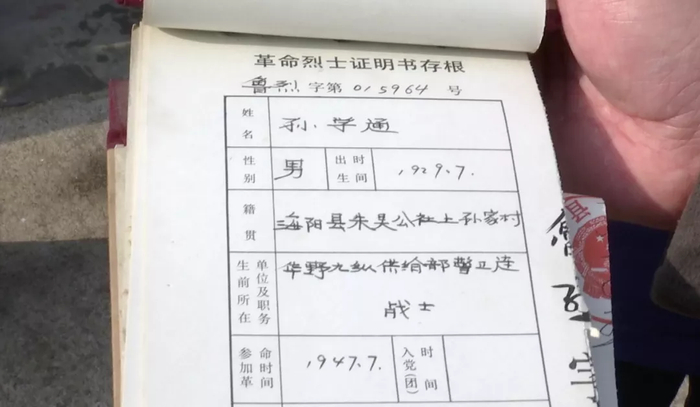 革命烈士证明书存根
鲁烈字第 015964 号
姓名 孙学通
性别 男 出生时间 1929.7.
籍贯 海阳县朱吴公社上孙家村
生前所在单位及职务 华野九纵供给部警卫连
战士
参加革命时间 1947.7. 入党(团)时间